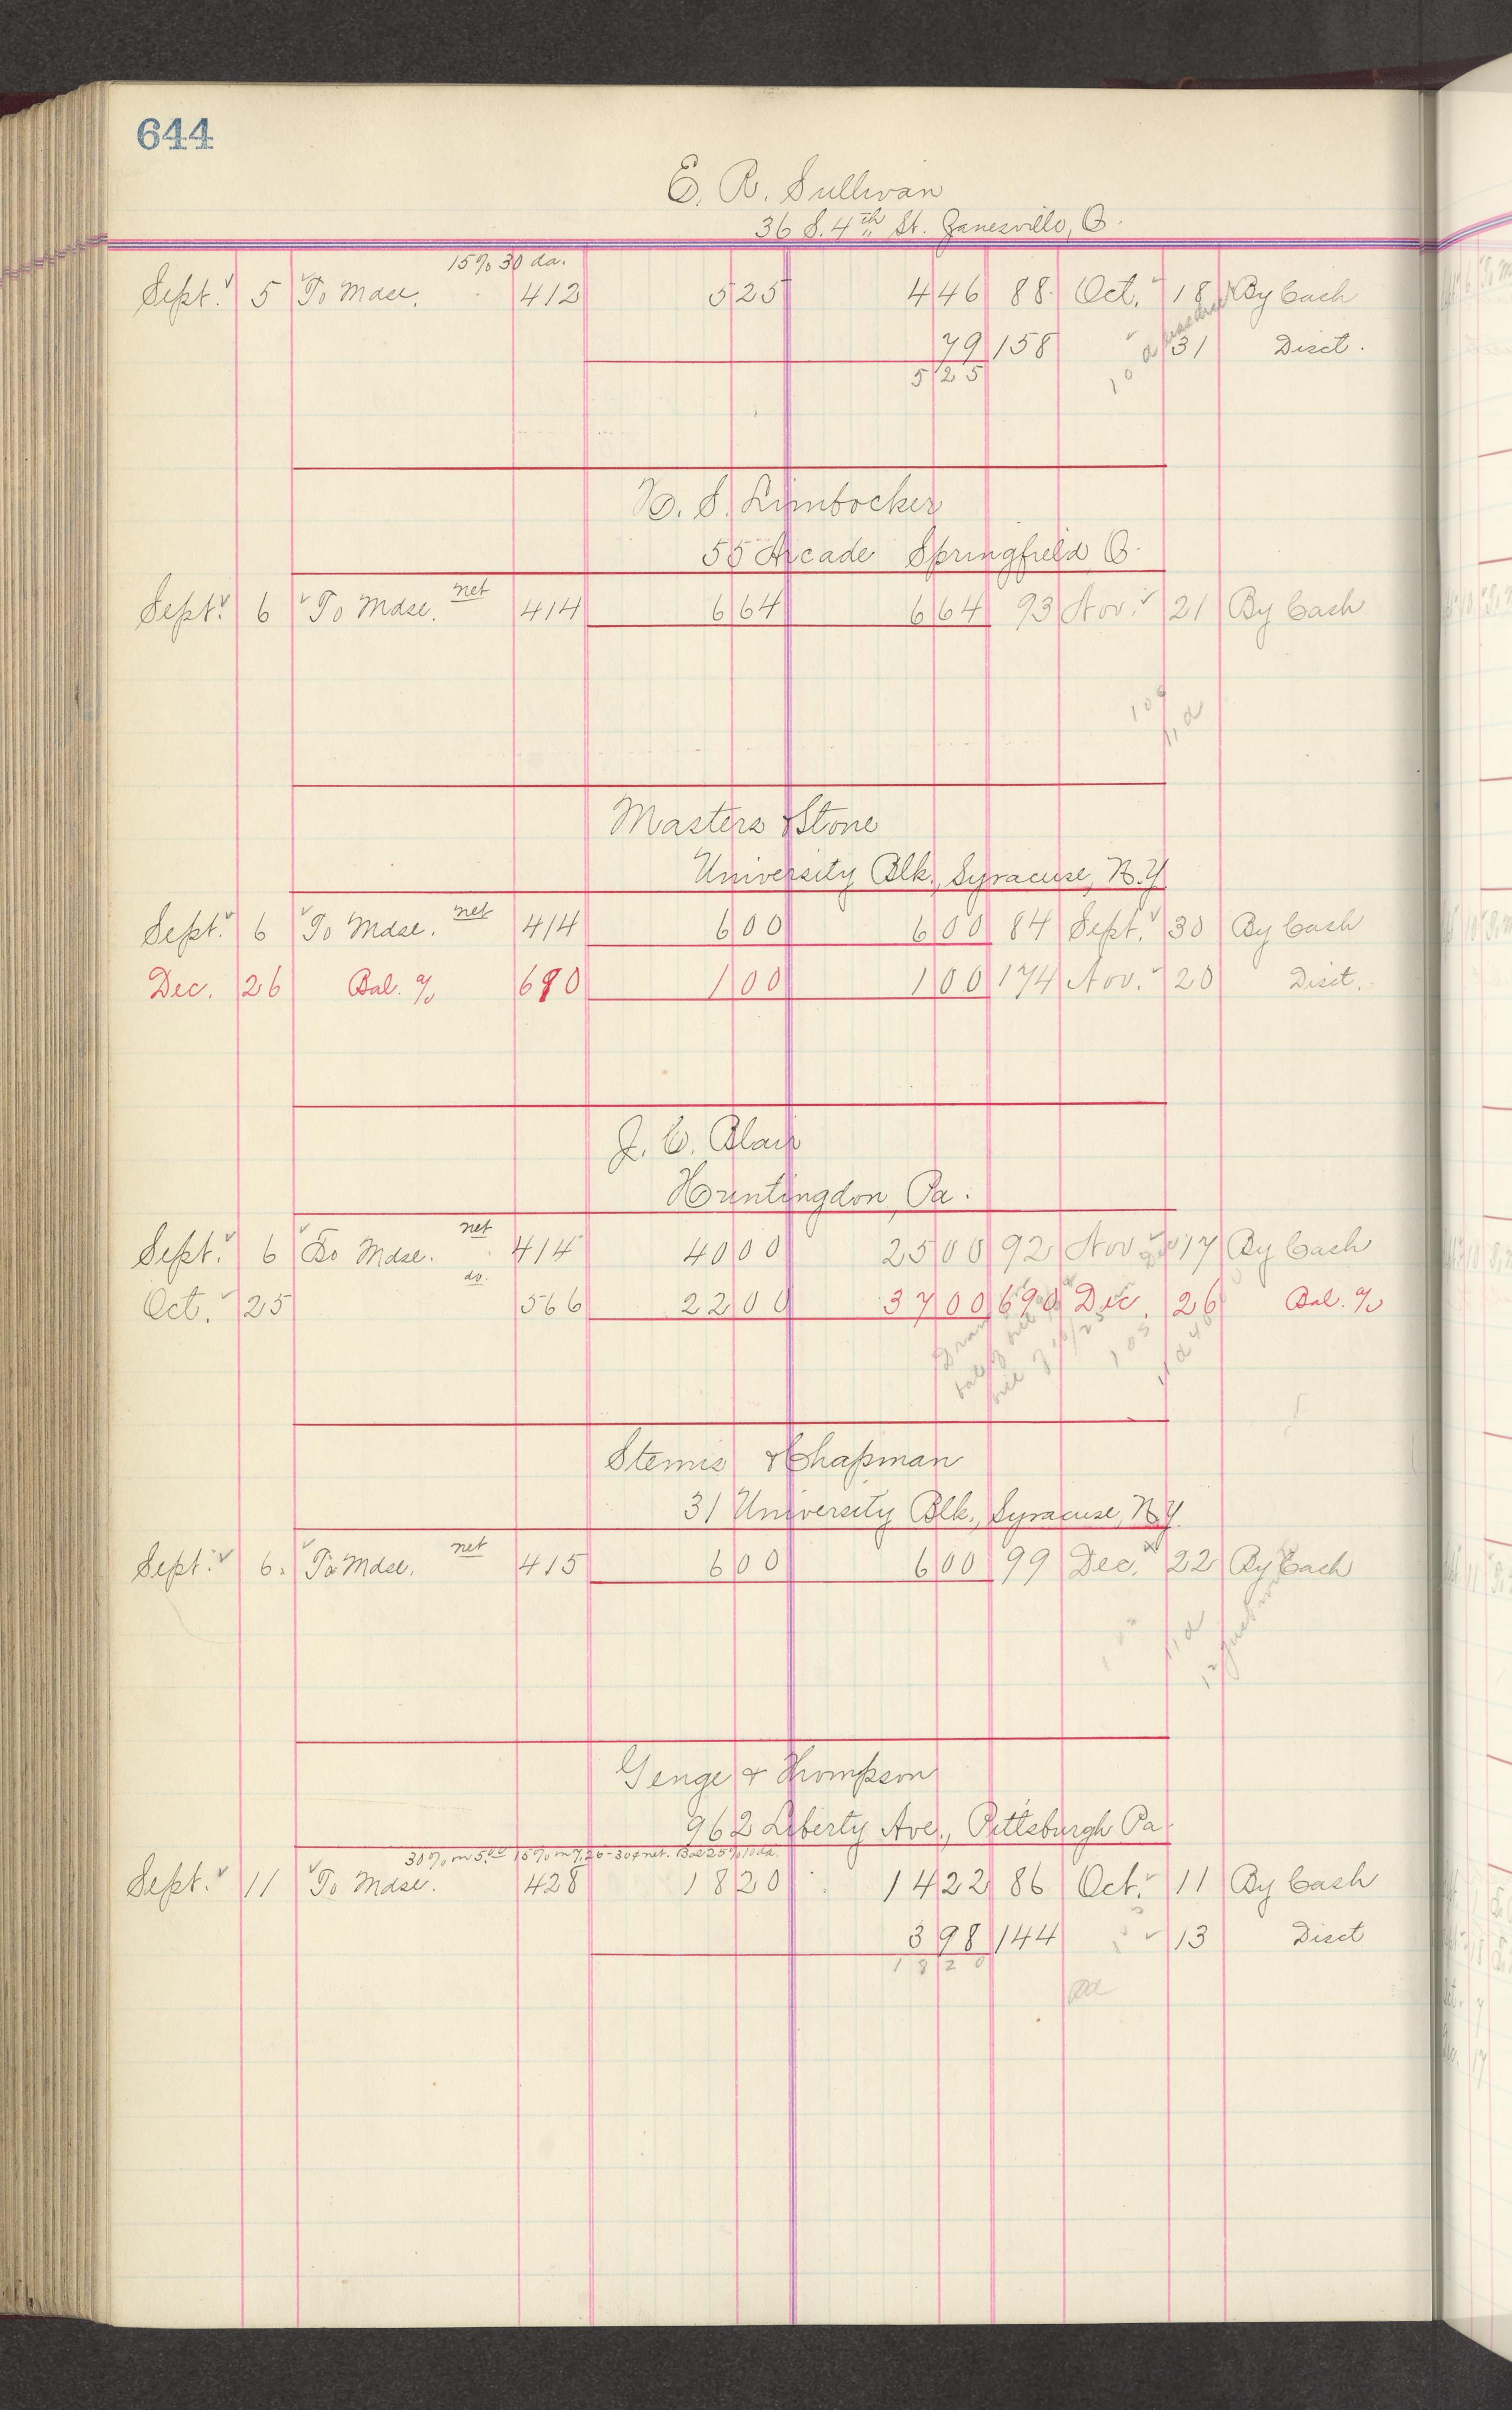 644
E. R. Sullivan
36 S. 4th St. Zanesville, O.
15% 30 da.
Sept. 5 To Mdse. 412 5 25 4 46 88 Oct. 18 By Cash
79 158 31 Disct.
5 25
H. S. Limbocker
55 Arcade Springfield O.
net
Sept. 6 To Mdse. 414 6 64 6 64 93 Nov. 21 By Cash
Masters & Stone
University Blk., Syracuse, N.Y.
net
Sept. 6 To Mdse. 414 6 00 6 00 84 Sept. 30 By Cash
Dec. 26 Bal. % 690 1 00 1 00 174 Nov. 20 Disct.
J. C. Blair
Huntingdon, Pa.
net
Sept. 6 To Mdse. 414 40 00 25 00 92 Nov. 17 By Cash
do.
Oct. 25 566 22 00 37 00 690 Dec. 26 Bal. %
Stemis & Chapman
31 University Blk., Syracuse, N.Y.
net
Sept. 6. To Mdse. 415 6 00 6 00 99 Dec. 22 By Cash
Genge & Thompson
962 Liberty Ave., Pittsburgh Pa.
Sept. 11 To Mdse. 428 18 20 14 22 86 Oct. 11 By Cash
3 98 144 13 Disct
18 20
pd